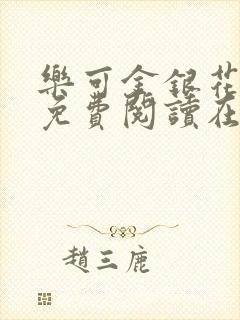 樂可金銀花
免費閱讀在
趙三鹿